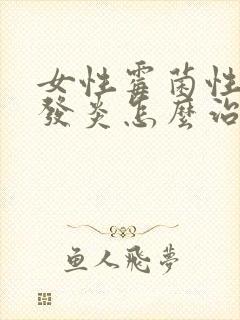 女性霉菌性
發炎怎麼治
鱼人飛夢